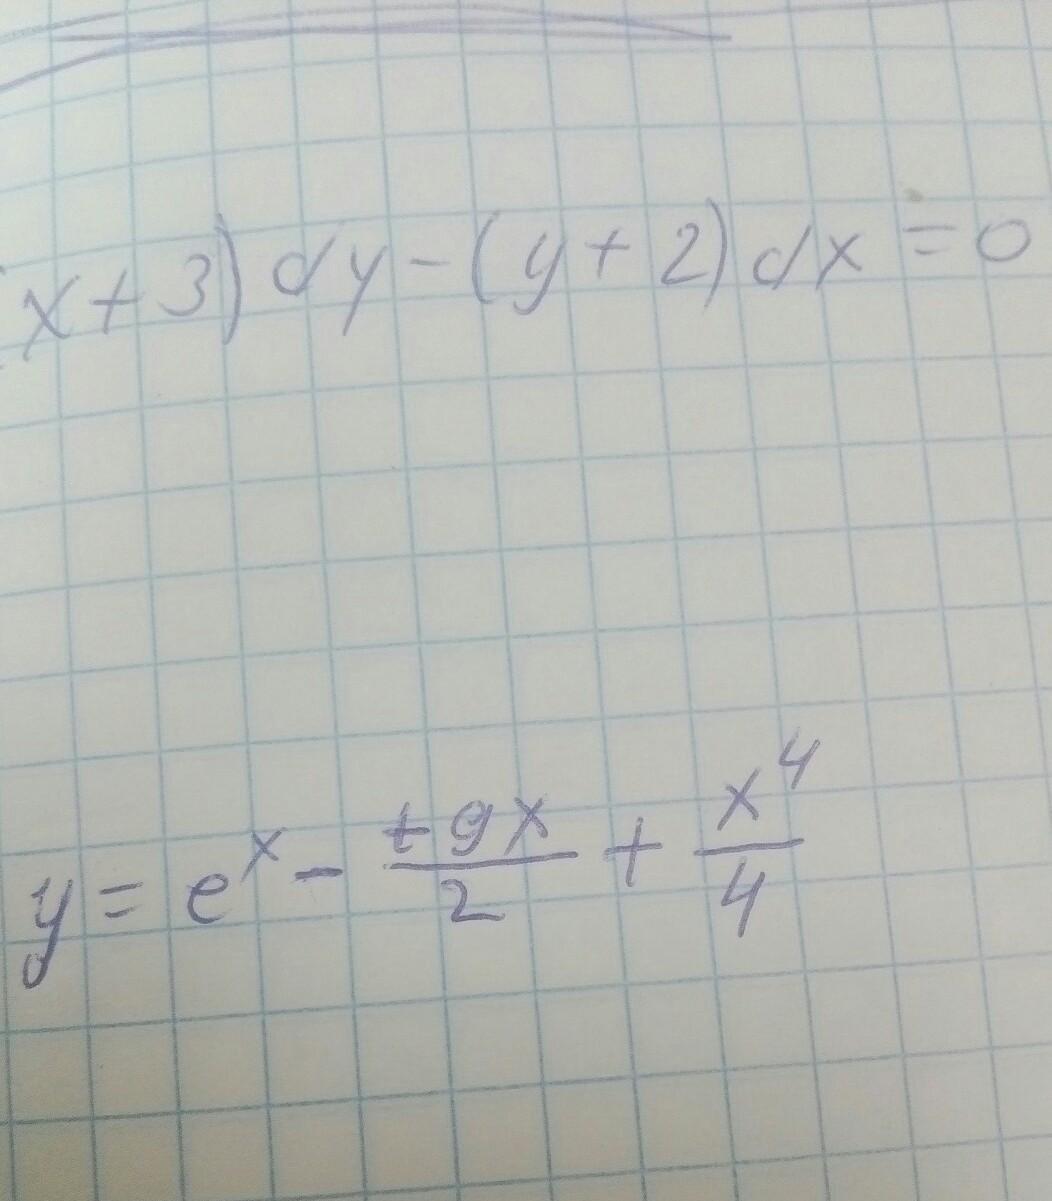 (x+3)dy-(y+2)dx=0
y=e^x-\frac{tgx}{2}+\frac{x^4}{4}